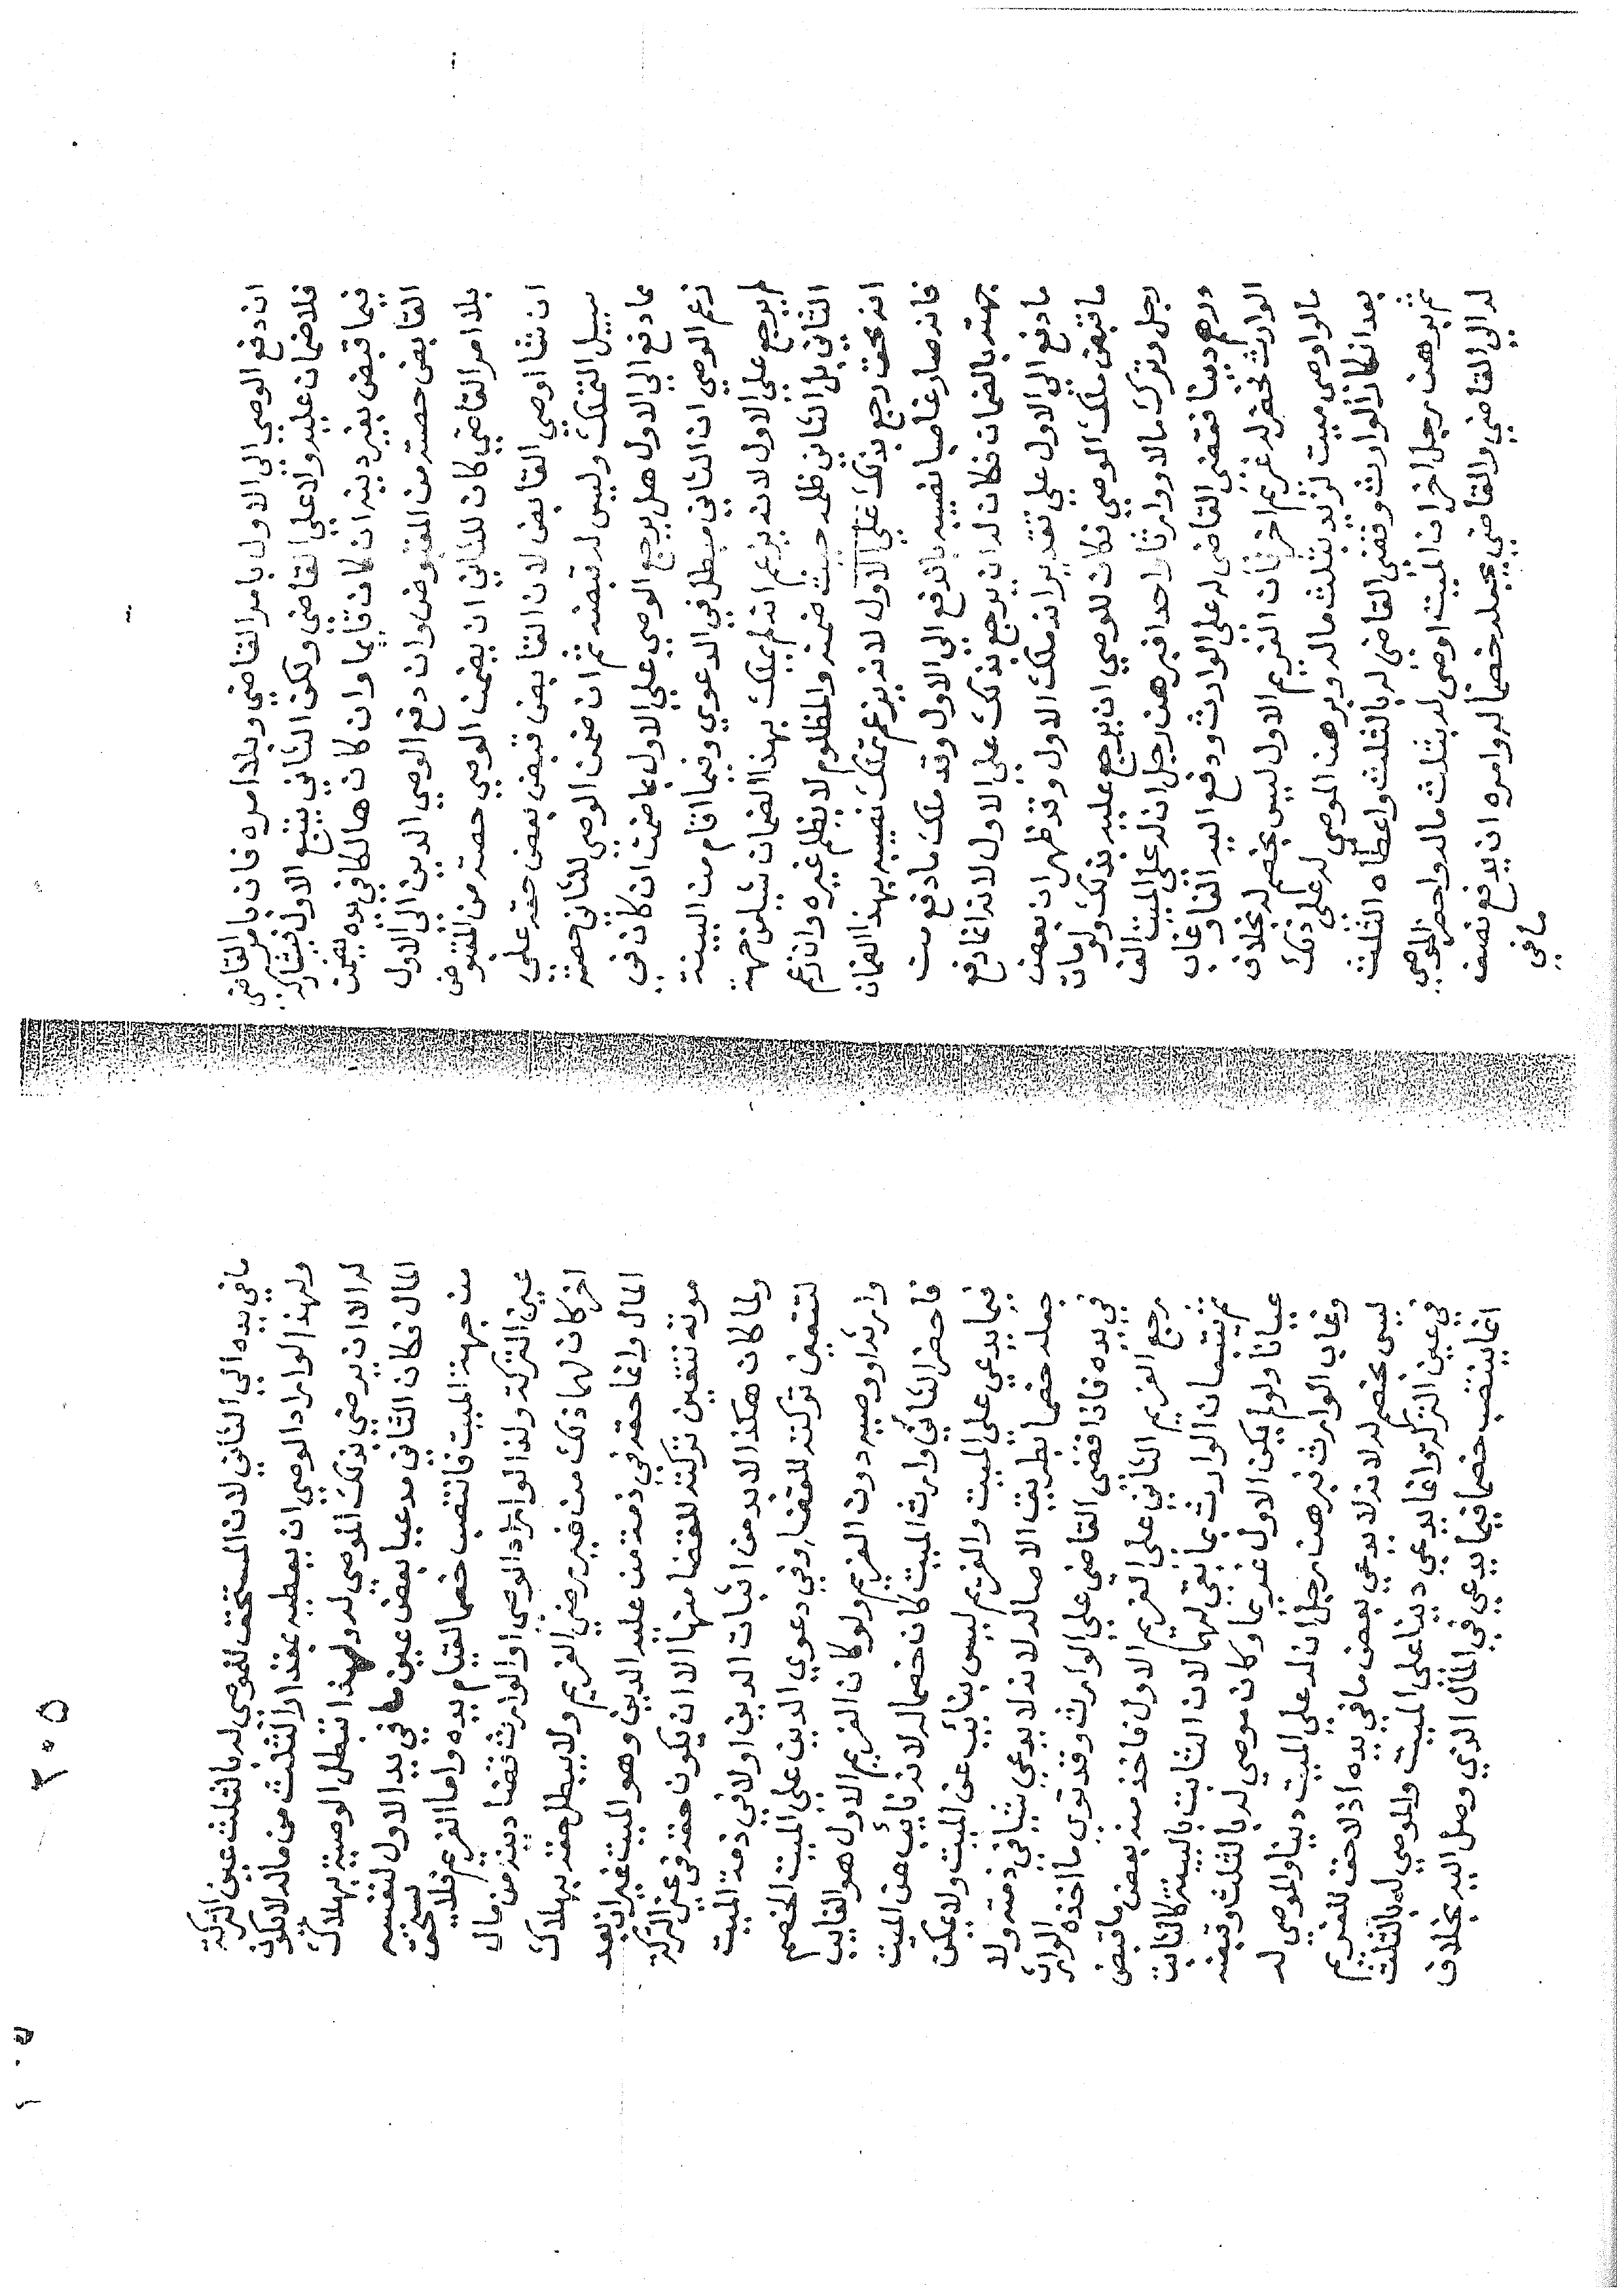 ان دفع الوصي الى الاول بامر القاضي وبلا امره فان بامر القاضي
فلا ضمان عليه ولا على القاضي ولكن الثاني يتبع الاول فيشاركه
فيما قبض بغير دينه ان كان قايما وان كان هالكا في يده يضمن
القابض حصته من المقبوض وان دفع الوصي الدين الى الاول
بلا امر القاضي كان للثاني ان يضمن الوصي حصته من المقبوض
ان شا اوصي القابض لان القابض قبض بعض حقه على
سبيل التملك وليس له قبضه ثم ان ضمن الوصي للثاني حصته
مما دفع الى الاول هل يرجع الوصي على الاول بما ضمن ان كان في
زعم الوصي ان الثاني مبطل في الدعوي وفيما اقام من البينة
لم يرجع على الاول لانه يزعم انه لم يملك بهذا الضمان شيا من جهة
الثاني بل الثاني ظلمه حيث ضمنه والمظلوم لا يظلم غيره وان زعم
انه محق رجع بذلك على الاول لانه يزعم تملك نصيبه بهذا الضمان
فانه صار غاصبا نصيبه بالدفع الى الاول وقد ملك ما دفع من
جهته بالضمان فكان له ان يرجع بذلك على الاول لانه انما دفع
ما دفع الى الاول على تقدير انه ملك الاول وقد ظهر ان بعض
ما قبض ملك الوصي فكان للوصي ان يرجع عليه بذلك ولو مات
رجل وترك مالا ووارثا واحدا فبرهن رجل ان له على الميت الف
درهم دينا فقضى القاضي له على الوارث ودفع اليه الفا وغاب
الوارث فحضر له غريم اخر فان الغريم الاول ليس بخصم له بخلاف
ما لو اوصى ميت لزيد بثلث ماله وبرهن الموصي له على ذلك
بعد انكار الوارث وقضى القاضي له بالثلث واعطاه الثلث
ثم برهن رجل اخر ان الميت اوصى له بثلث ماله واحضر الموصي
له الى القاضي والقاضي يجعله خصما له وامره ان يدفع نصف
ما في
٢٠٥
ما في يده الى الثاني لان المستحق للموصى له بالثلث عين التركة
ولهذا لو اراد الوصي ان يعطيه بمقدار الثلث من ماله لا يكون
له الا ان يرضى بذلك الموصى له ولهذا تبطل الوصية بهلاك
المال فكان الثاني مدعيا بعض عين ما في يد الاول لنفسه
من جهة الميت فانتصب خصما لقيام يده واما الغريم فلا يستحق
عين التركة ولذا لو اراد الوصي او الوارث قضا دينه من مال
اخر كان لهما ذلك من غير رضى الغريم ولا يبطل حقه بهلاك
المال وانما حقه في ذمة من عليه الدين وهو الميت غير ان بعد
موته تتعين تركته للقضا منها الا ان يكون حقه في عين التركة
ولما كان هكذا لا بد من اثبات الدين اولا في ذمة الميت
لتتعين تركته للقضا وفي دعوي الدين على الميت الخصم
وارثه او وصيه دون الغريم ولو كان الغريم الاول هو الغايب
فاحضر الثاني وارث الميت كان خصما له لانه نايب عن الميت
فيما يدعي على الميت والغريم ليس بنايب عن الميت ولا يمكن
جعله خصما بطريق الاصالة لانه لا يدعي شيا في ذمته ولا
في يده فاذا قضى القاضي على الوارث وقد توي ما اخذه الوارث
رجع الغريم الثاني على الغريم الاول فاخذ منه بعض ما قبض
ثم يتبعان الوارث بما بقي لهما لان الثابت بالبينة كالثابت
عيانا ولو لم يكن الاول غريما وكان موصى له بالثلث وقبضه
وغاب الوارث فبرهن رجل ان له على الميت دينا والموصى له
ليس بخصم له لانه لا يدعي بعض ما في يده اذ لا حق للغريم
في عين التركة وانما يدعي دينا على الميت والموصى له بالثلث
انما ينتصب خصما فيما يدعي في المال الذي وصل اليه بخلاف